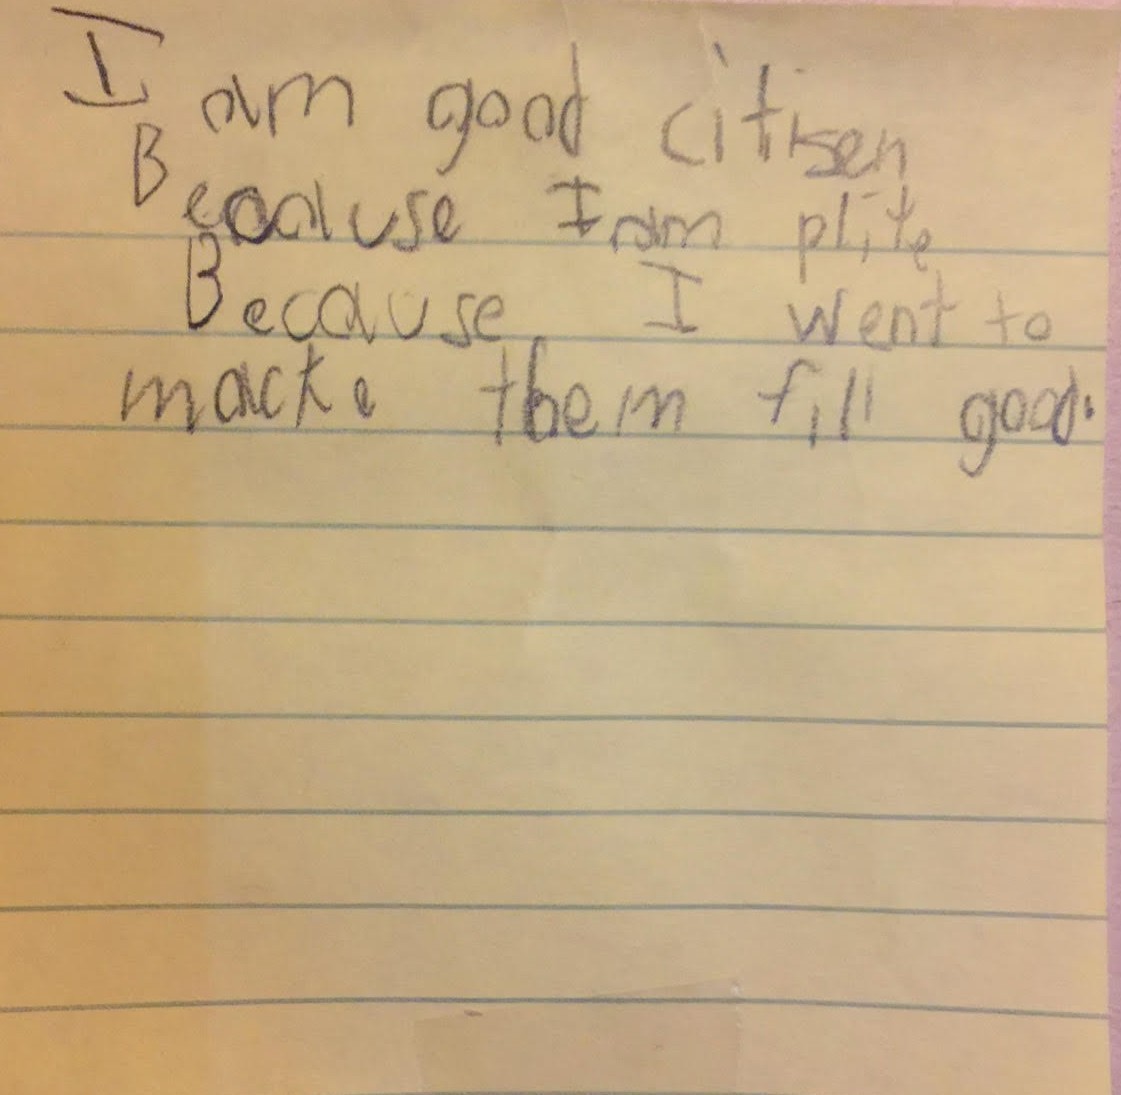 I am good citisen
Because I am plite
Because I went to
macke them fill good.